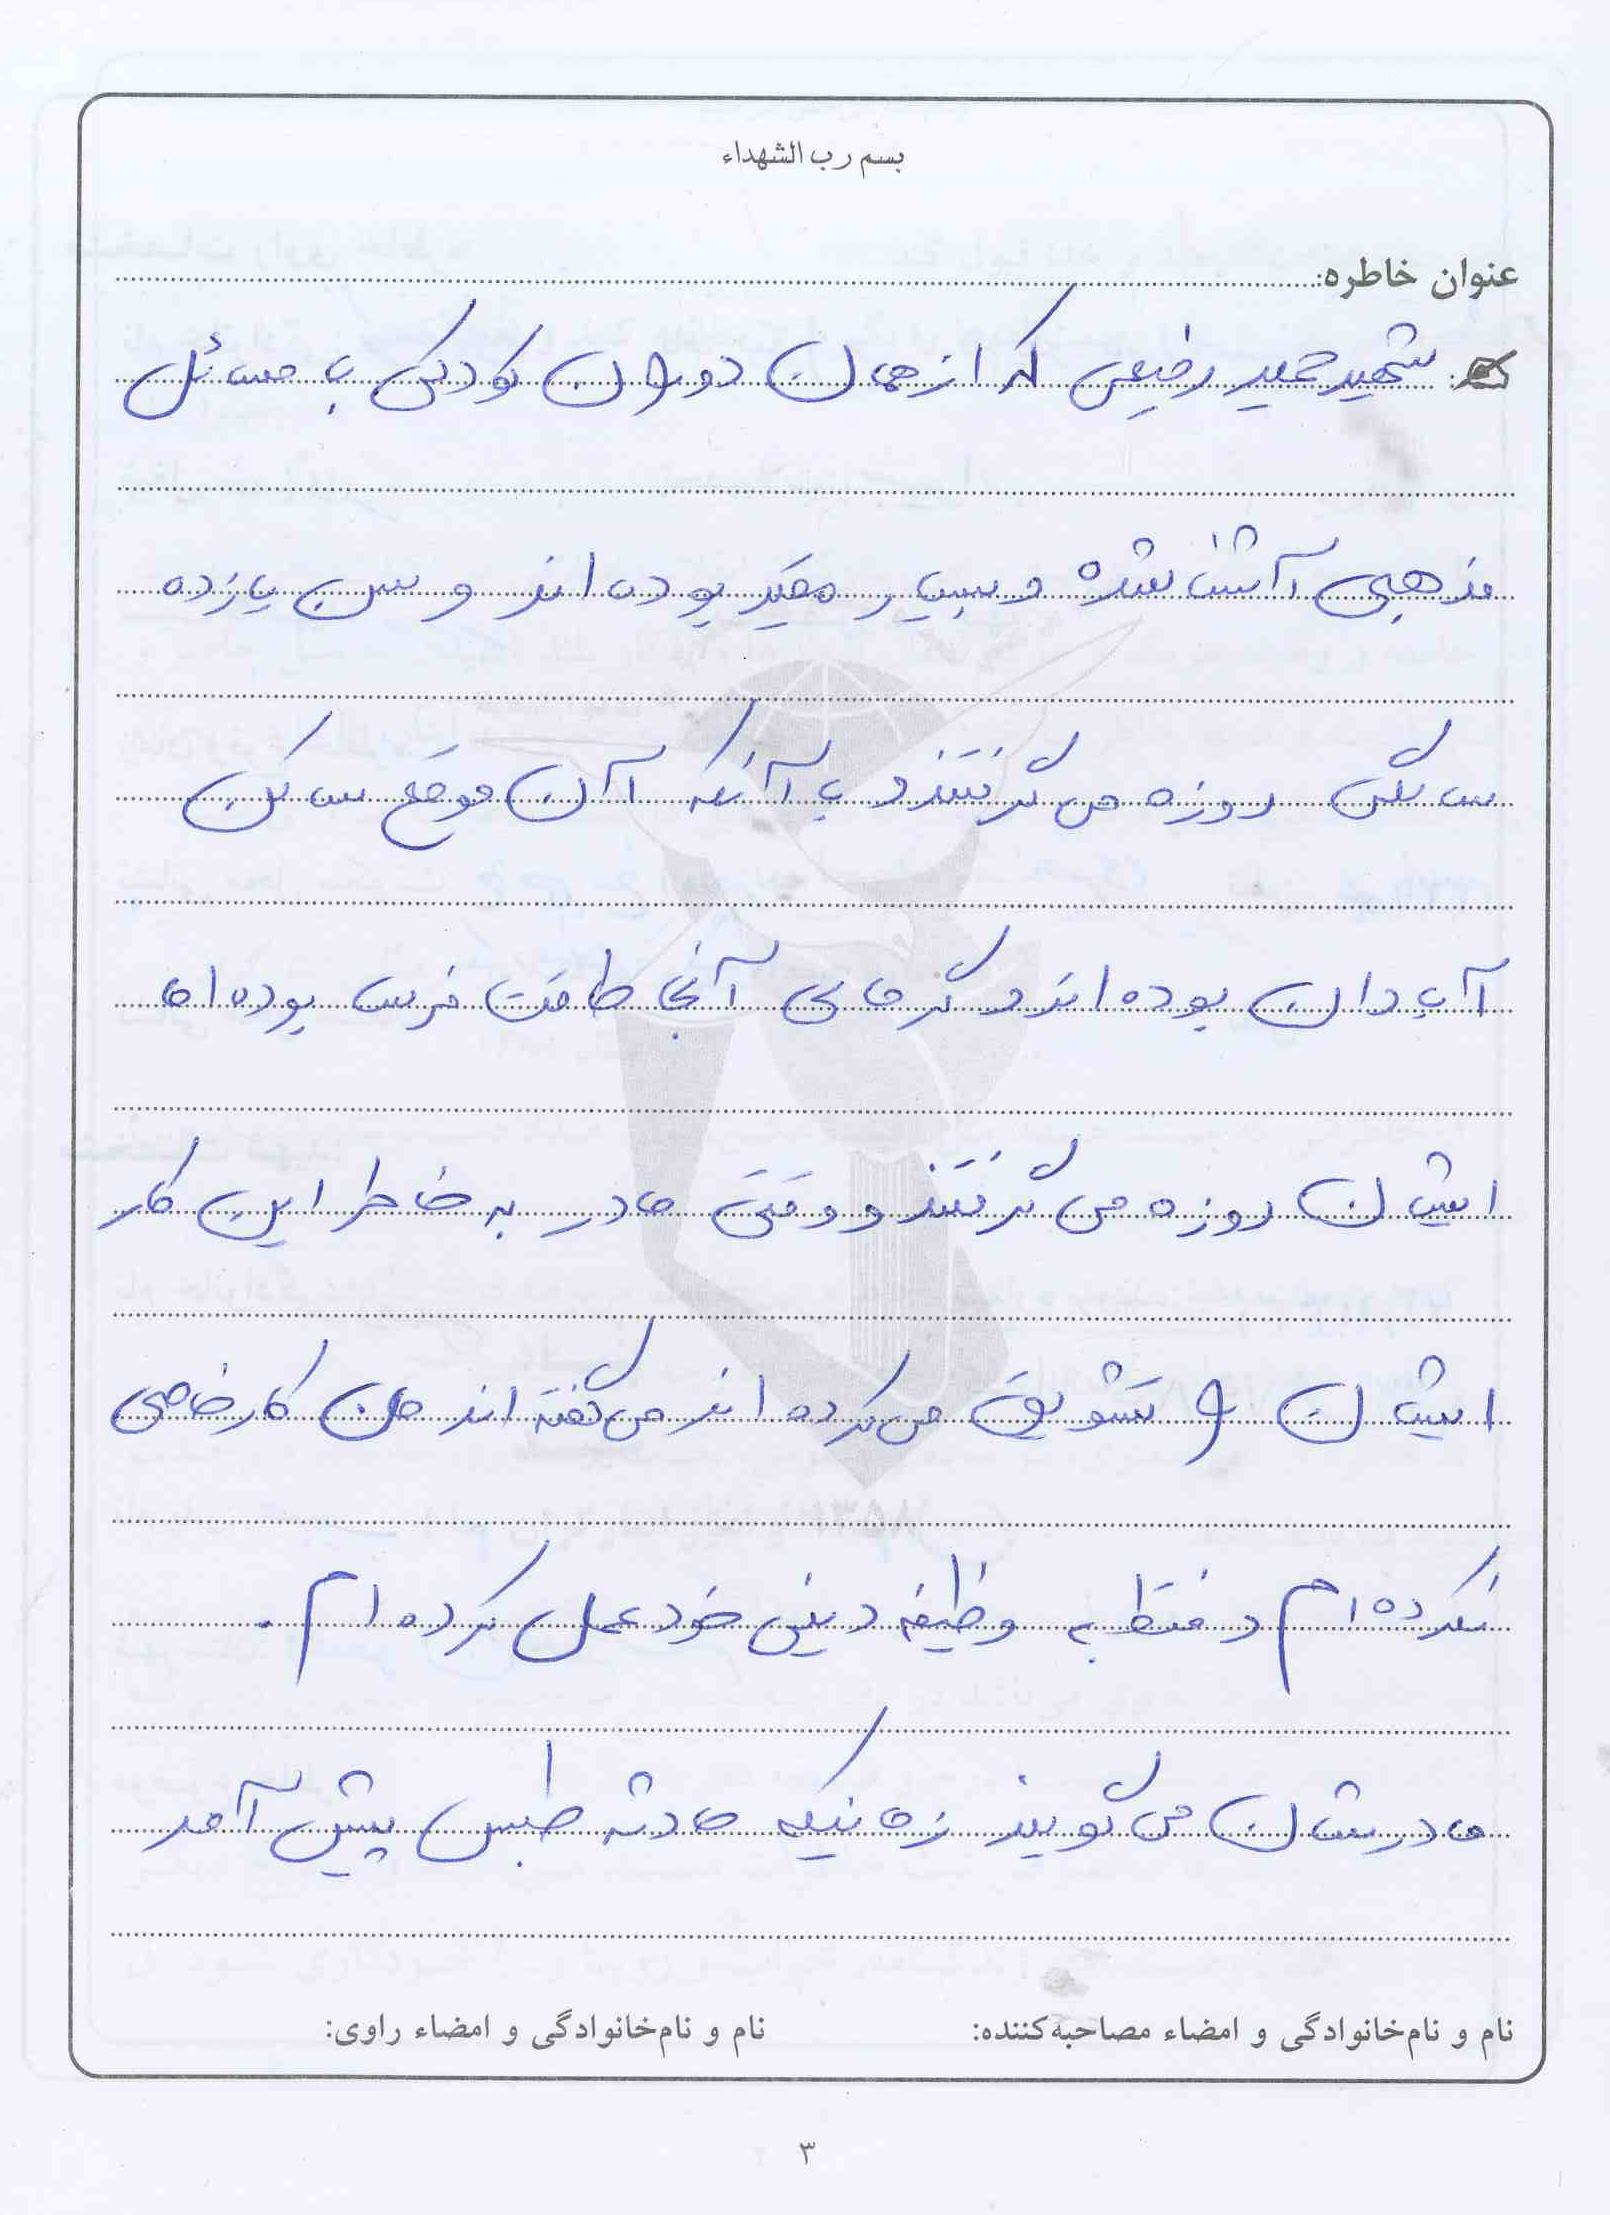 بسم رب الشهداء
عنوان خاطره:
شهید حمید رفیعی که از همان دوران کودکی با مسائل
مذهبی آشنا شده و بسیار مقید بوده اند و سن یازده
سالگی روزه می گرفتند و با آنکه آن موقع ساکن
آبادان بوده اند و گرمای آنجا طاقت فرسا بوده اما
ایشان روزه می گرفتند و وقتی مادر به خاطر این کار
ایشان را تشویق می کرده اند می گفته اند من کار خاصی
نکرده ام و فقط به وظیفه دینی خود عمل کرده ام .
مادرشان می گویند زمانیکه حادثه طبس پیش آمد
نام و نام‌خانوادگی و امضاء مصاحبه‌کننده: نام و نام‌خانوادگی و امضاء راوی:
۳